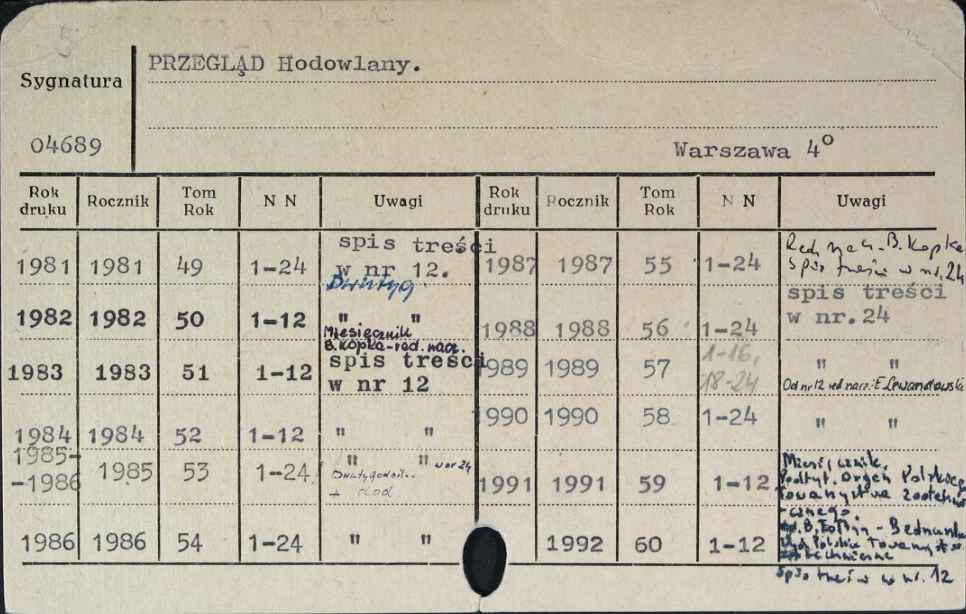 PRZEGLĄD Hodowlany.
Sygnatura
04689
Warszawa 4°
Rok druku Rocznik Tom Rok N N Uwagi Rok druku Rocznik Tom Rok N N Uwagi
1981 1981 49 1-24 spis treści w nr 12. Dwutyg.
1982 1982 50 1-12 " " Miesięcznik B. Kopka-red. nacz.
1983 1983 51 1-12 spis treści w nr 12
1984 1984 52 1-12 " "
1985-1986 1985 53 1-24 " " w nr 24
1986 1986 54 1-24 " "
1987 1987 55 1-24 Red. nacz. B. Kopka spis treści w nr. 24
1988 1988 56 1-24 spis treści w nr. 24
1989 1989 57 1-16, 18-24 " " Od nr 12 red nacz. E Lewandowski
1990 1990 58 1-24 " "
1991 1991 59 1-12 Miesięcznik. Podtyt. Organ Polskiego Towarzystwa zootechni-cznego.
1992 60 1-12 Bednarska Polskie Towarzystwo
spis treści w nr. 12